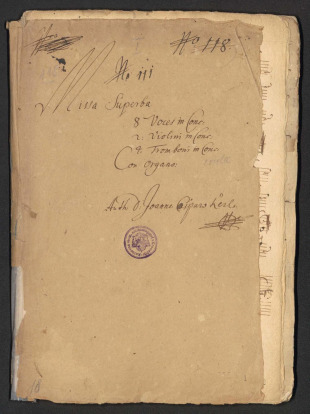 No 118.
No iij
Missa Superba
8 Voces in Conc.
2 Violini in Conc.
4 Tromboni in Conc.
Con Organo.
Auth. D. Joanne Casparo Kerl.